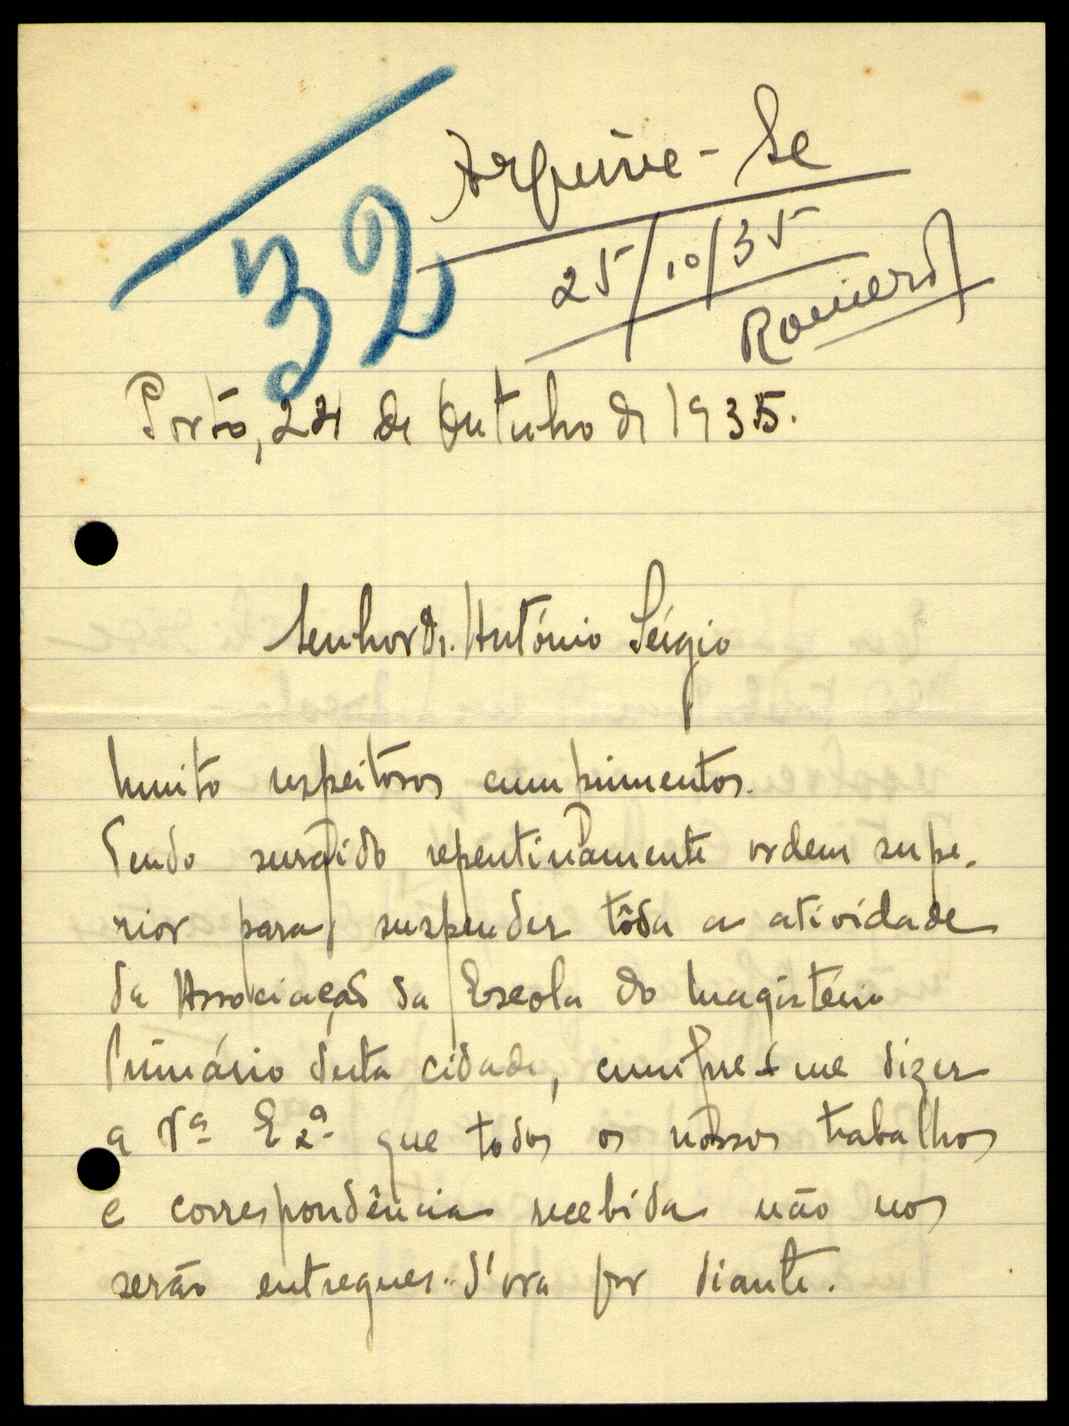 Arquive-se
25/10/35
Romero
32
Porto, 24 de Outubro de 1935.
Senhor Dr. António Sérgio
Muito respeitosos cumprimentos.
Tendo surgido repentinamente ordem supe-
rior para suspender tôda a atividade
da Associação da Escola do Magistério
Primário desta cidade, cumpre-me dizer
a Vª Exª que todos os nossos trabalhos
e correspondência recebida não nos
serão entregues d'ora por diante.